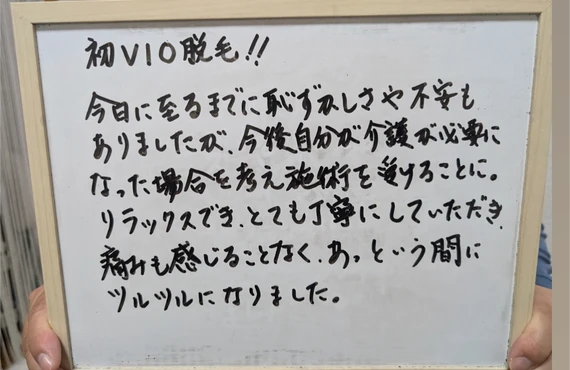 初VIO脱毛!!
今日に至るまでに恥ずかしさや不安も
ありましたが、今後自分が介護が必要に
なった場合を考え施術を受けることに。
リラックスでき、とても丁寧にしていただき、
痛みも感じることなく、あっという間に
ツルツルになりました。